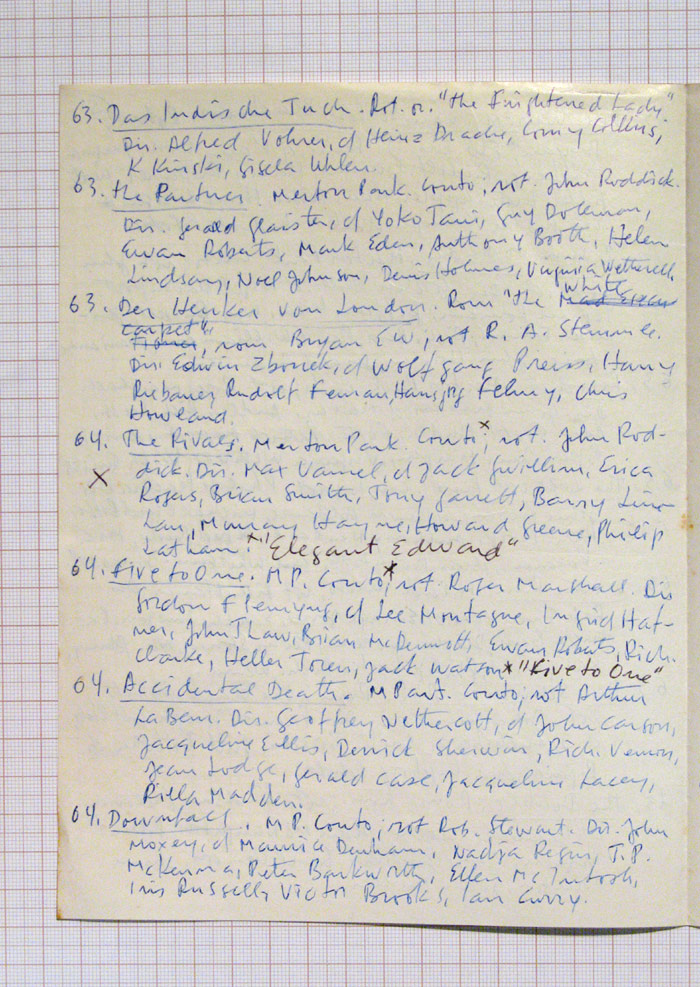 63. Das Indische Tuch. Rot. or. "the Frightened Lady."
Dir. Alfred Vohrer, d Heinz Drache, Corny Collins,
K Kinski, Gisela Uhlen.
63. the Partner. Merton Park. Conto; not. John Roddick.
Dir. Gerald Glaister, d Yoko Tani, Guy Doleman,
Ewan Roberts, Mark Eden, Anthony Booth, Helen
Lindsay, Noel Johnson, Denis Holmes, Virginia Wetherell.
63. Der Henker von London. Rom "the white
carpet", rom Bryan E W., not R. A. Stemmle.
Dir. Edwin Zbonek, d Wolfgang Preiss, Harry
Riebauer, Rudolf Fernau, Hansjörg Felmy, Chris
Howland.
64. The Rivals. Merton Park. Conto x; not. John Rod-
x dick. Dir. Max Varnel, d Jack Gwillim, Erica
Rogers, Brian Smith, Tony Garrett, Barry Line-
han, Murray Hayne, Howard Greene, Philip
Latham. x "Elegant Edward"
64. Five to One. M P. Conto x; not. Roger Marshall. Dir
Gordon Flemyng, d Lee Montague, Ingrid Haf-
ner, John Thaw, Brian McDermott, Ewan Roberts, Rich.
Clarke, Heller Toren, Jack Watson x "Five to One"
64. Accidental Death. M Park. Conto; not Arthur
La Bern. Dir. Geoffrey Nethercott, d John Carson,
Jacqueline Ellis, Derrick Sherwin, Rich. Vernon,
Jean Lodge, Gerald Case, Jacqueline Lacey,
Rilla Madden.
64. Downfall. M P. Conto; not Rob. Stewart. Dir. John
Moxey, d Maurice Denham, Nadja Regin, T. P.
McKenna, Peter Barkworth, Ellen McIntosh,
Iris Russell, Victor Brooks, Ian Curry.